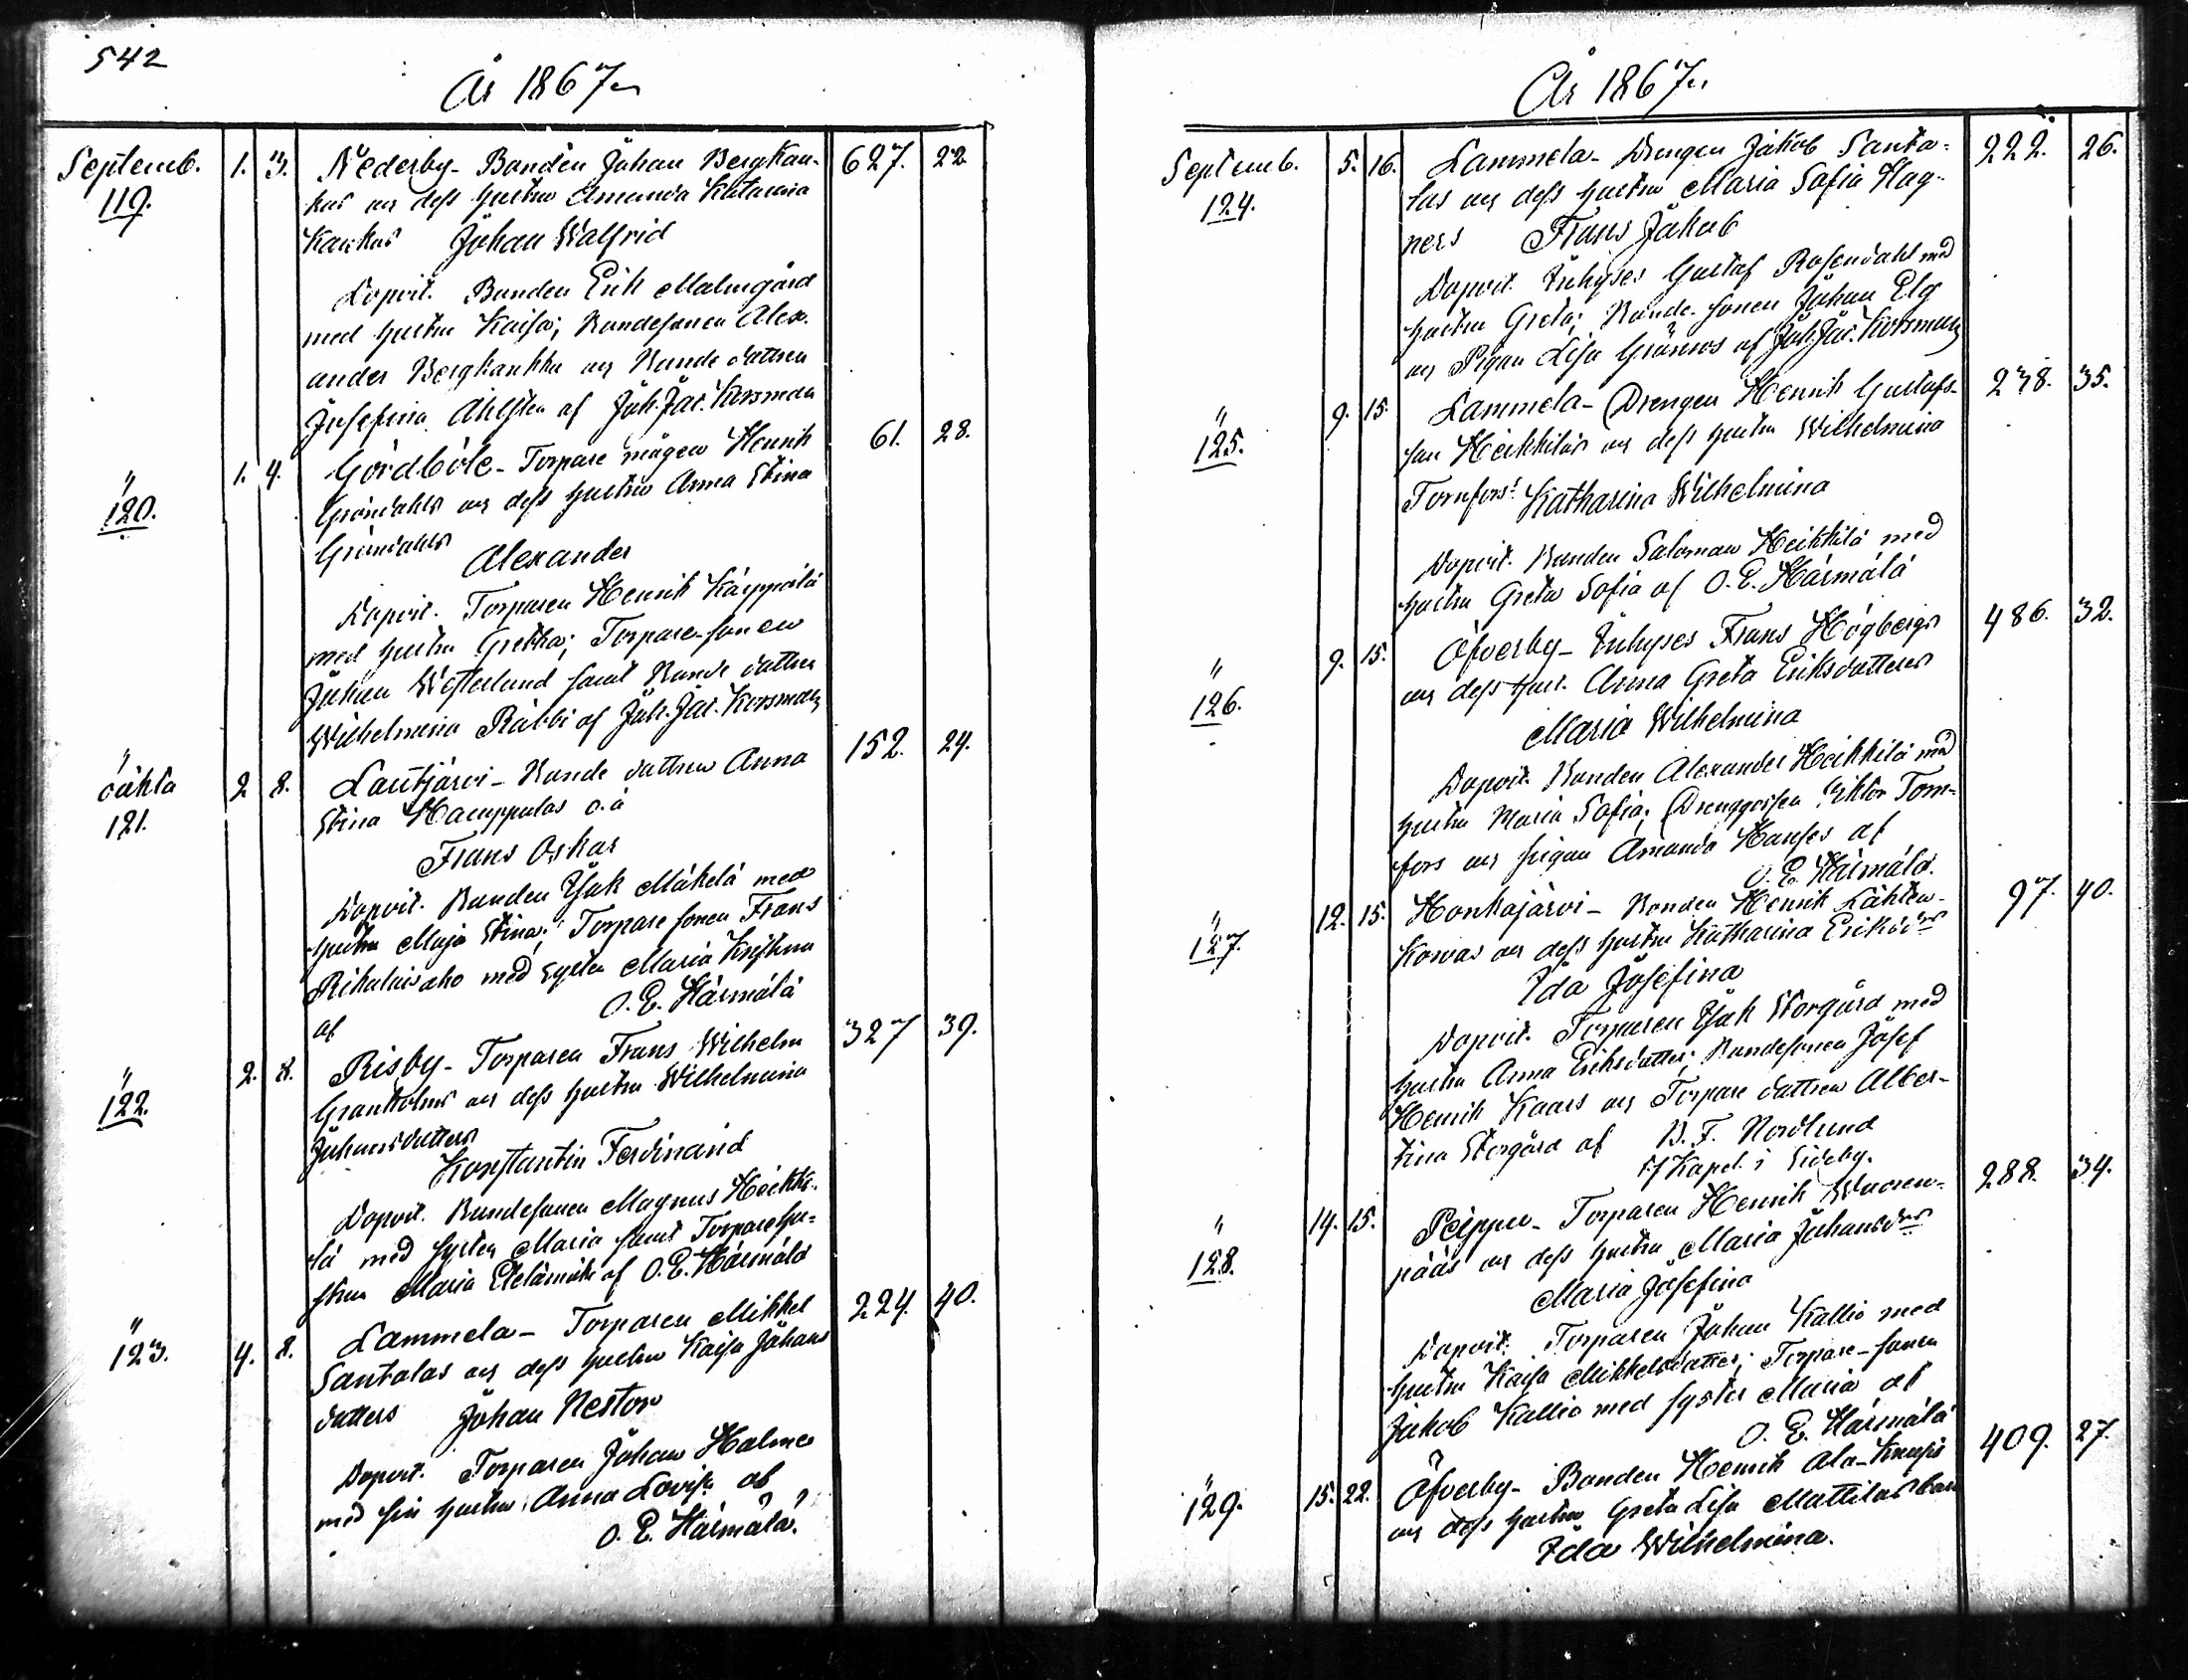 542
År 1867
Septemb. 1. 3. Nederby - Bonden Johan Bergkan- 627. 22
119. kas och dess hustru Amanda Katarina
Kankas Johan Walfrid
Dopvit. Bonden Erik Malmgård
med hustru Kaisa; Bondesonen Alex-
ander Bergkankka och Bonde dattren
Josefina Ahlsten af Joh. Jac. Korsman
" 1. 4. Gördböle - Torpare mågen Henrik 61. 28.
120. Gröndahls och dess hustru Anna Stina
Gröndahls
Alexander
Dopvit. Torparen Henrik Käppälä
med hustru Gretha; Torpare-sonen
Johan Westerlund samt Bonde dattren
Wilhelmina Räbbi af Joh. Jac. Korsman
" 2 8. Lautjärvi - Bonde dattren Anna 152. 24.
oäkta Stina Hamppulas o.ä
121.
Frans Oskar
Dopvit. Bonden Isak Mäkelä med
hustru Maja Stina; Torpare sonen Frans
med syster Maria Kristina
af O. E. Härmälä
" 2. 8. Risby - Torparen Frans Wilhelm 327 39.
122. Granholms och dess hustru Wilhelmina
Johansdatters
Konstantin Ferdinand
Dopvit. Bondesonen Magnus Heikki-
lä med syster Maria samt Torparehu-
strun Maria Etelämäki af O. E. Härmälä
" 4. 8. Lammela - Torparen Mikkel 224. 40.
123. Santalas och dess hustru Kaisa Johans
datters Johan Nestor
Dopvit. Torparen Johan Halme
med sin hustru Anna Lovisa af
O. E. Härmälä.
År 1867
Septemb. 5. 16. Lammela - Drengen Jakob Santa- 222. 26.
124. las och dess hustru Maria Sofia Hag-
ners Frans Jakob
Dopvit. Inhyses Gustaf Rosendahl med
hustru Greta; Bonde-sonen Johan Elg
och Pigan Lisa Grönroos af Joh. Jac. Korsman
" 9. 15. Lammela - Drengen Henrik Gustafs- 238. 35.
125. son Heikkiläs och dess hustru Wilhelmina
Tornfors: Katharina Wilhelmina
Dopvit. Bonden Salomon Heikkilä med
hustru Greta Sofia af O. E. Härmälä
" 9. 15. Öfverby - Inhyses Frans Högbergs 486. 32.
126. och dess hust. Anna Greta Eriksdatters
Maria Wilhelmina
Dopvit. Bonden Alexander Heikkilä med
hustru Maria Sofia; Drenggossen Viktor Torn-
fors och pigan Amanda Hanses af
O. E. Härmälä.
" 12. 15. Honkajärvi - Bonden Henrik Lähten- 97. 40.
127. korvas och dess hustru Katharina Eriksdrs
Ida Josefina
Dopvit. Torparen Isak Storgård med
hustru Anna Eriksdatter; Bondesonen Josef
Henrik Kaars och Torpare dattren Alber-
tina Storgård af B. F. Nordlund
Kapel. i Sideby.
" 14. 15. Peippu - Torparen Henrik Wuoren- 288. 34.
128. pääs och dess hustru Maria Johansdrs
Maria Josefina
Dopvit. Torparen Johan Kallio med
hustru Kaisa Mikkelsdatter; Torpare-sonen
Jakob Kallio med syster Maria af
O. E. Härmälä
" 15. 22. Öfverby - Bonden Henrik Ala-Knups 409. 27.
129. och dess hustru Greta Lisa Mattilas barn
Ida Wilhelmina.